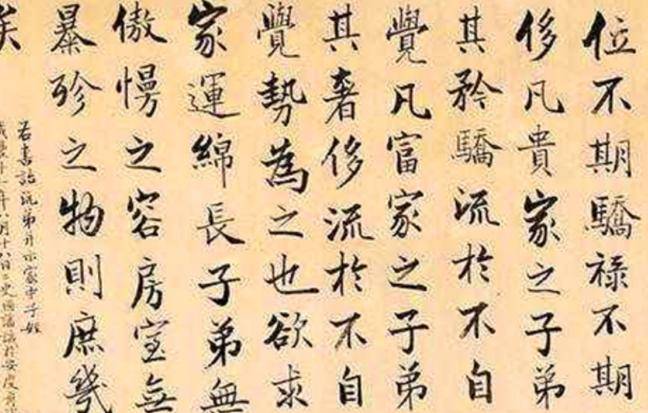 位不期驕祿不期
侈凡貴家之子弟
其矜驕流於不自
覺凡富家之子弟
其奢侈流於不自
覺勢為之也欲求
家運綿長子弟無
傲慢之容房室無
暴殄之物則庶幾
矣
書詒沅弟并示家中子姪
國藩識於安慶